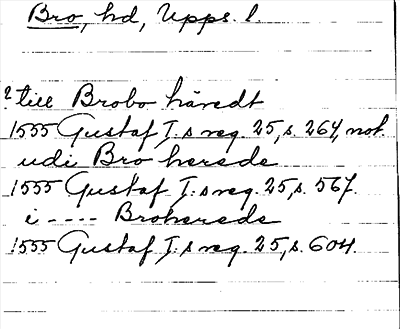 Bro, hd, Upps. l.
? till Brobo häredt
1555 Gustaf I:s reg. 25, s. 264, not.
udi Bro herede
1555 Gustaf I:s reg. 25, s. 567.
i ---- Broherede
1555 Gustaf I:s reg. 25, s. 604.